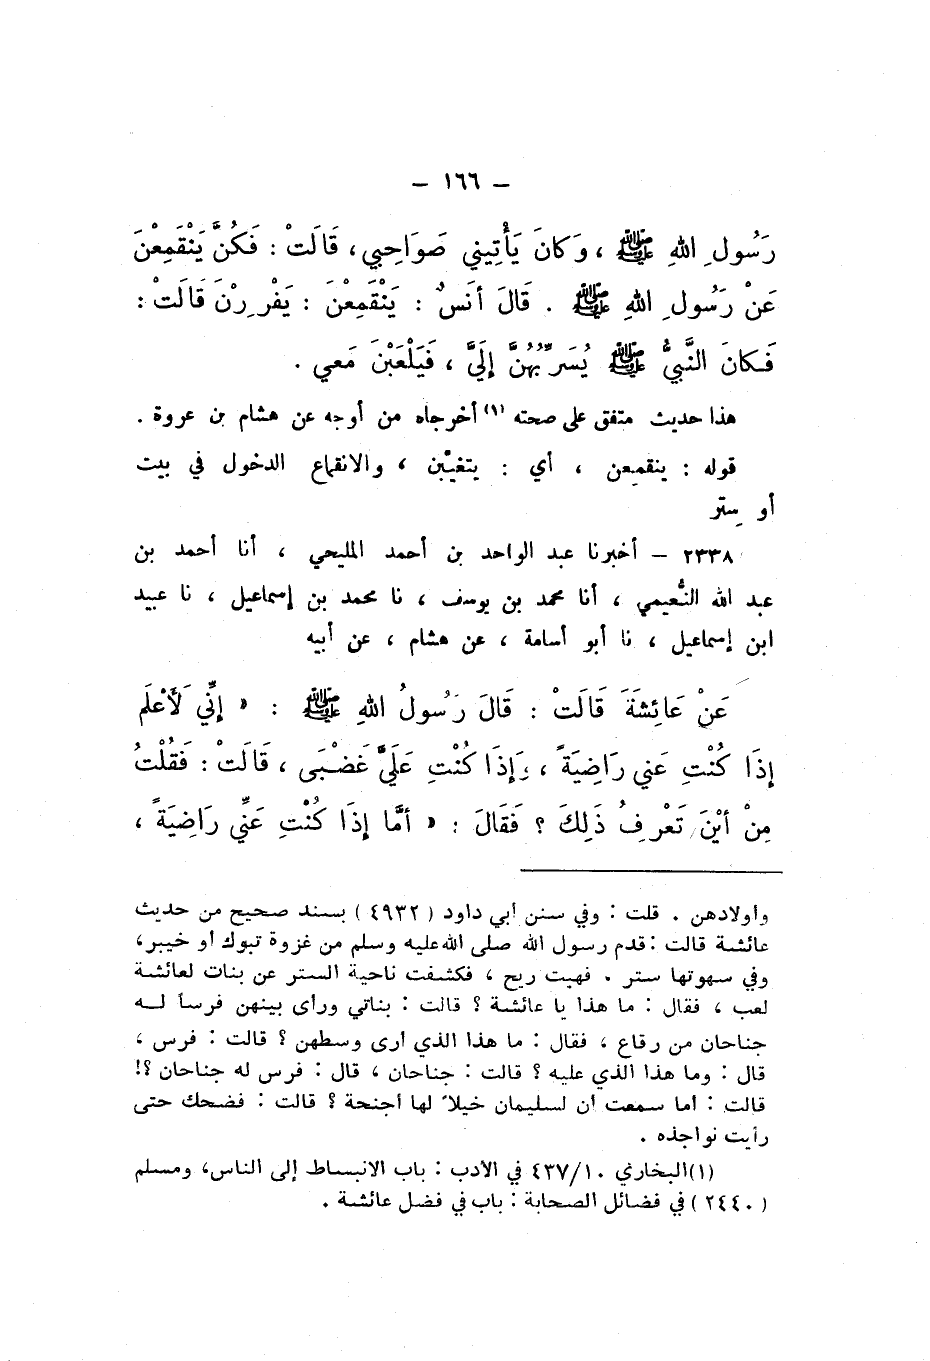 – ١٦٦ –
رَسُولِ اللهِ ﷺ ، وَكانَ يَأْتِيني صَوَاحِبي ، قَالَتْ : فَكُنَّ يَنْقَمِعْنَ
عَنْ رَسُولِ اللهِ ﷺ . قَالَ أَنَسٌ : يَنْقَمِعْنَ : يَفْرِرْنَ قَالَتْ :
فَكانَ النَّبيُّ ﷺ يُسَرِّبُهُنَّ إِلَيَّ ، فَيَلْعَبْنَ مَعي .
هذا حديث متفق على صحته (١) أخرجاه من أوجه عن هشام بن عروة .
قوله : ينقمعن ، أي : يتغيَّبن ، والانقماع الدخول في بيت
أو ستر
٢٣٣٨ – أخبرنا عبد الواحد بن أحمد المليحي ، أنا أحمد بن
عبد الله النُّعيمي ، أنا محمد بن يوسف ، نا محمد بن إسماعيل ، نا عبيد
ابن إسماعيل ، نا أبو أسامة ، عن هشام ، عن أبيه
عَنْ عَائِشَةَ قَالَتْ : قَالَ رَسُولُ اللهِ ﷺ : « إِنِّي لَأَعْلَم
إِذَا كُنْتِ عَني رَاضِيَةً ، وَإِذَا كُنْتِ عَلَيَّ غَضْبَى ، قَالَتْ : فَقُلْتُ
مِنْ أَيْنَ تَعْرِفُ ذَلِكَ ؟ فَقَالَ : « أَمَّا إِذَا كُنْتِ عَنِّي رَاضِيَةً ،
وأولادهن . قلت : وفي سنن أبي داود ( ٤٩٣٢ ) بسند صحيح من حديث
عائشة قالت : قدم رسول الله صلى الله عليه وسلم من غزوة تبوك أو خيبر ،
وفي سهوتها ستر . فهبت ريح ، فكشفت ناحية الستر عن بنات لعائشة
لعب ، فقال : ما هذا يا عائشة ؟ قالت : بناتي ورأى بينهن فرساً لــه
جناحان من رقاع ، فقال : ما هذا الذي أرى وسطهن ؟ قالت : فرس ،
قال : وما هذا الذي عليه ؟ قالت : جناحان ، قال : فرس له جناحان ؟!
قالت : أما سمعت أن لسليمان خيلاً لها أجنحة ؟ قالت : فضحك حتى
رأيت نواجذه .
(١) البخاري ٤٣٧/١٠ في الأدب : باب الانبساط إلى الناس ، ومسلم
( ٢٤٤٠ ) في فضائل الصحابة : باب في فضل عائشة .